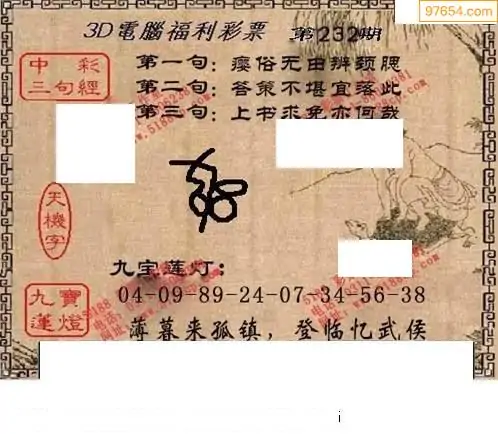 97654.com
3D電腦福利彩票 第232期
中彩
三句經
第一句：瘿俗无由辨颈腮
第二句：答策不堪宜落此
第三句：上书求免亦何哉
天機字
九宝莲灯：
九寶
蓮燈
04-09-89-24-07-34-56-38
薄暮来孤镇，登临忆武侯
i